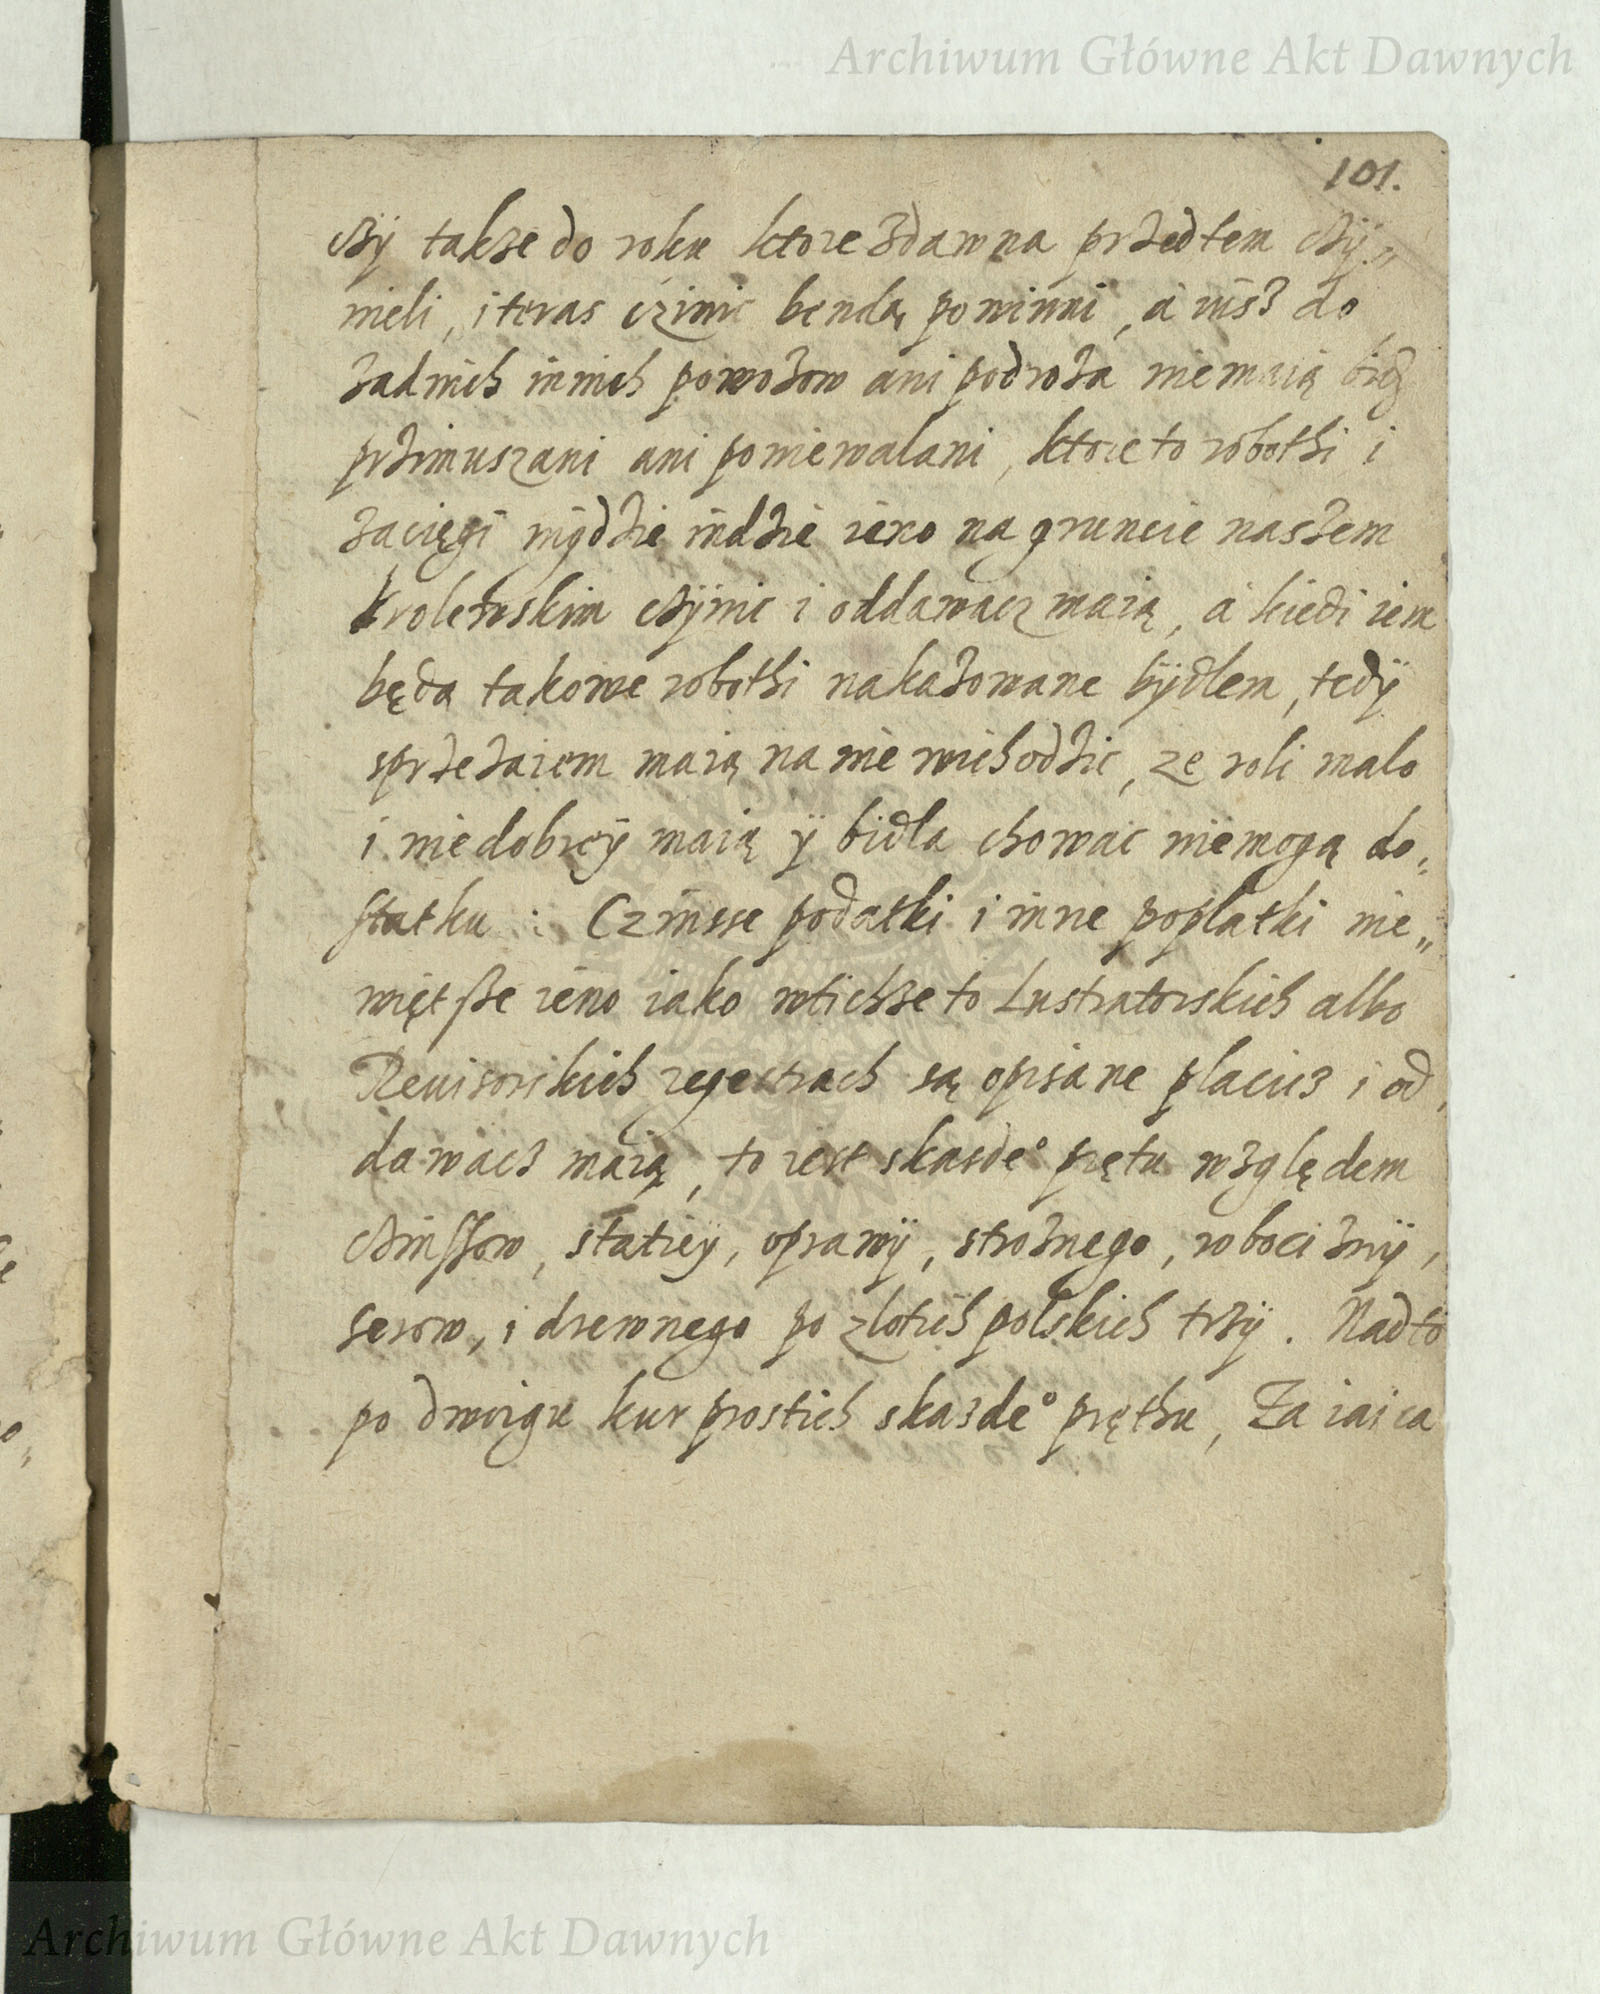 Archiwum Główne Akt Dawnych
101.
czÿ takze do roku ktore zdawna przedtem czÿ„
nieli, i teras czinic bendą powinni, a uisz do
zadnich innich powozow ani podroza niemaią bicz
przimuszani ani poniewalani, ktore to robothi i
zacięgi nigdzie indzie ieno na gruncie naszem
krolewskim czÿnic i oddawacz maią, a kiedi iem
będą takowe robothi nakazowane bÿdlem, tedÿ
sprzezaiem maią na nie wichodzic, ze roli malo
i niedobreÿ maią ÿ bidla chowac niemogą do„
statku : Czinsse podatki i inne poplatki nie„
więtsze ieno iako wtichze to Lustratorskich albo
Reuisorskich regestrach są opisane placicz i od„
dawacz maią, to iest skasde° prętu względem
czinszow, staticÿ, oprawÿ, stroznego, robociznÿ,
serow, i drewnego po zlotich polskich trzÿ. Nadto
po dwoigu kur prostich skazde° pręthu, Za iaica
Archiwum Główne Akt Dawnych